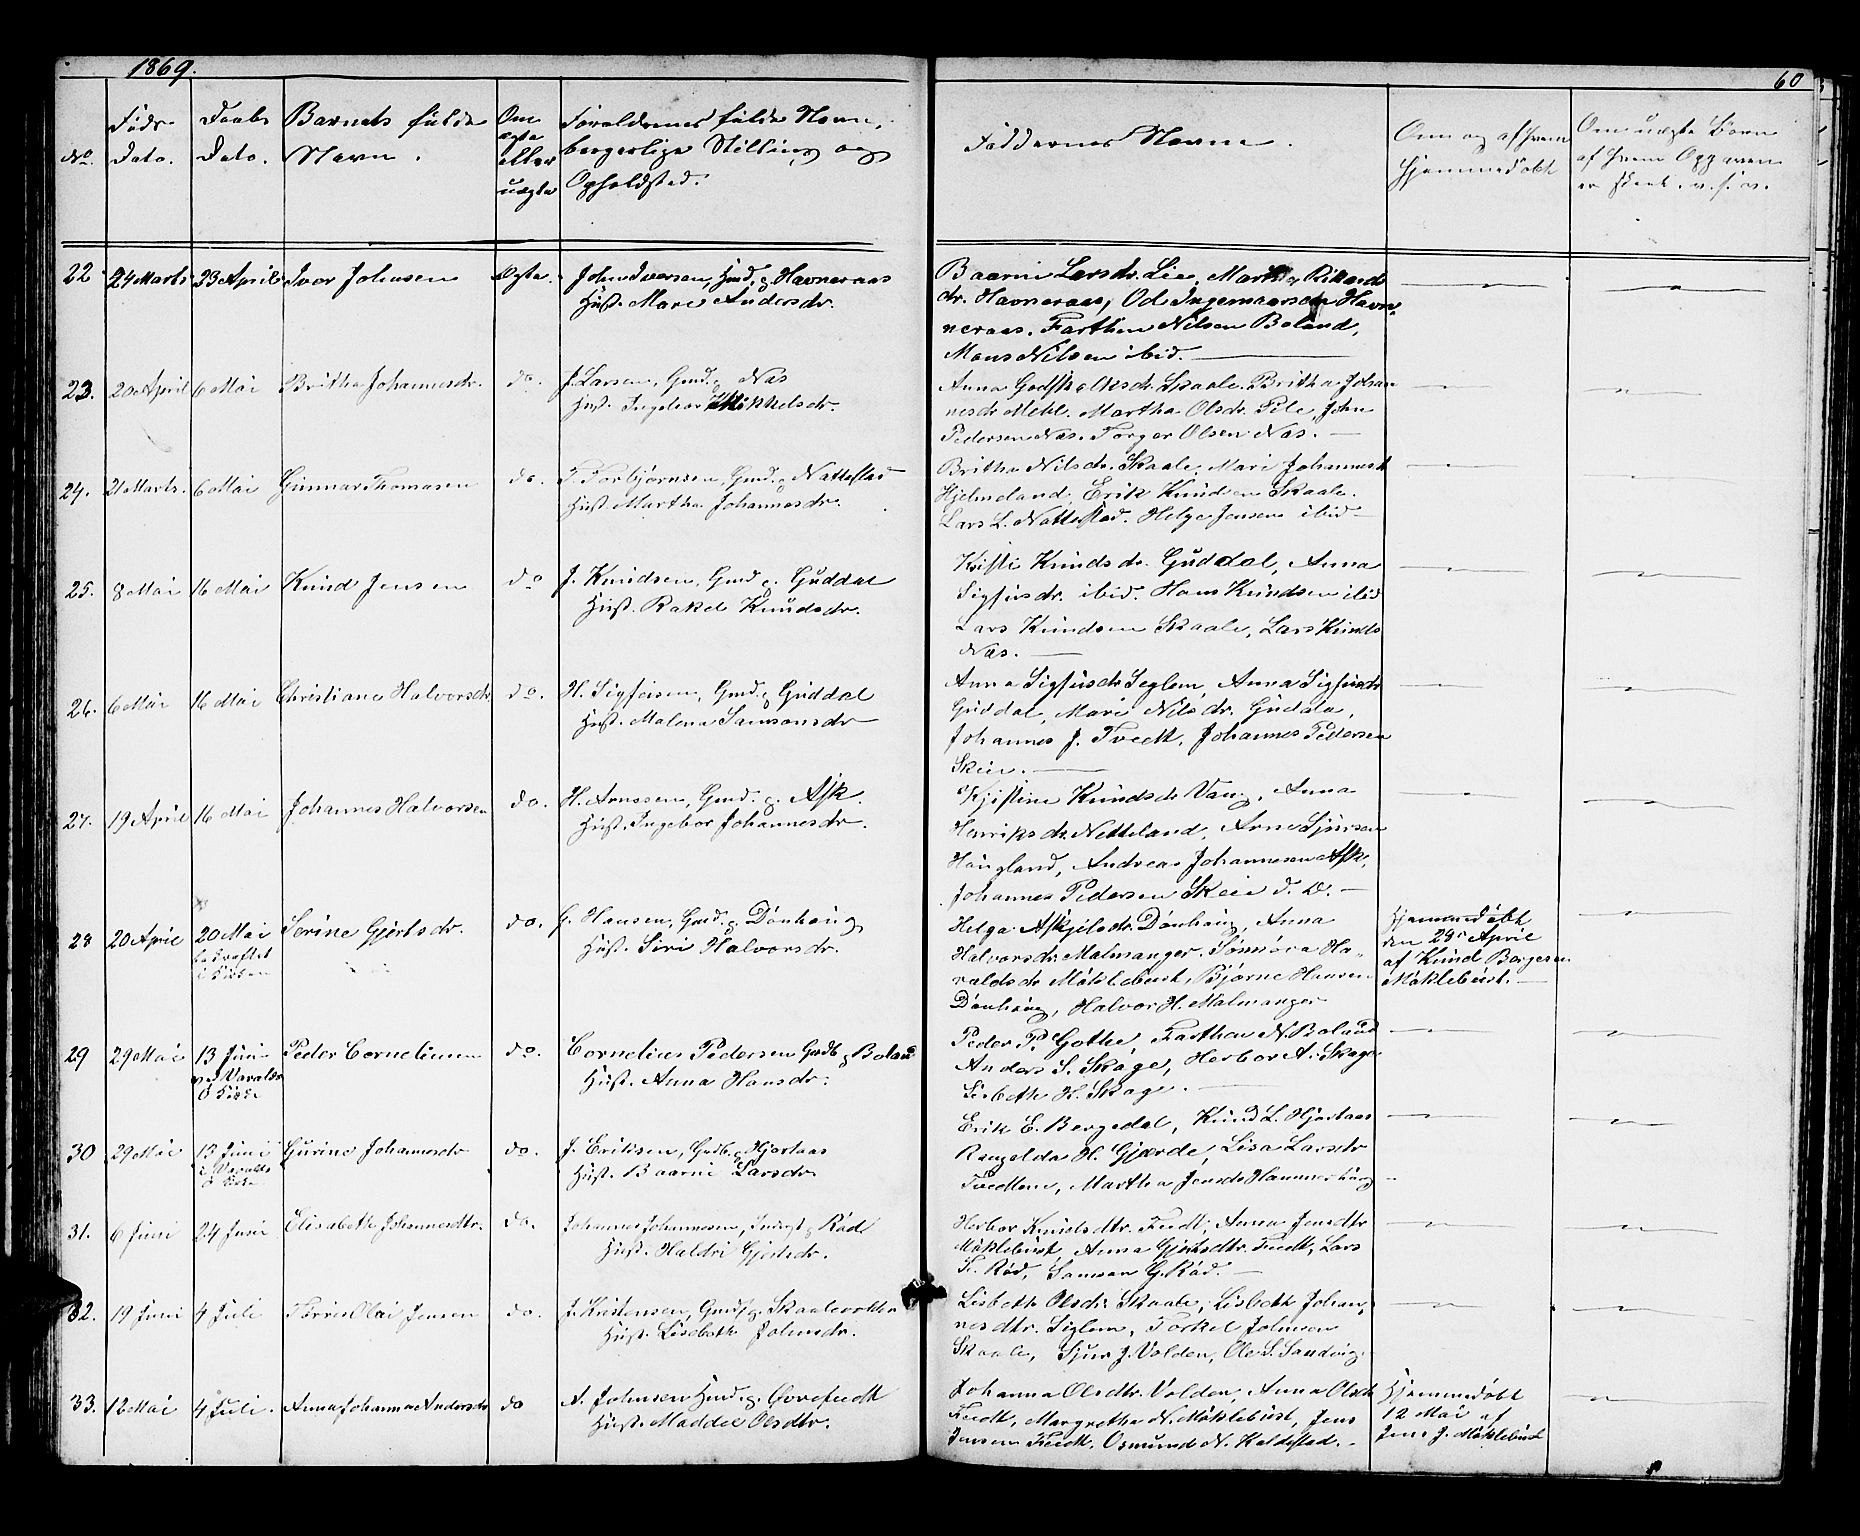 1869.
60
No.
Føds-
Dato.
Daabs
Dato.
Barnets fulde
Navn.
Om
ægte
eller
uægte
Forældrenes fulde Navn,
borgerlige Stilling og
Opholdsted.
Faddernes Navne.
Om og af hvem
hjemmedøbt
Om uægte Børn
22 24 Marts 23 April Iver Johnsen Ægte. John Iversen, Hmd. g. Havneraas
Hust. Mari Andersdr.
Baarni Larsdr. Lie, Martha Rikard
dr. Havneraas, Od Ingemaarsen Havn-
neraas. Farthin Nilsen Boland,
Mons Nilsen ibid.
23. 20 April 6 Mai Britha Johannesdr. do. J. Larsen, Gmd. g. Næs
Hust. Ingebor Mikkelsdr.
Anna Godskalksdr. Skaale. Britha Johan
nesdr. Mehl. Martha Olsdr. Pile, John
Pedersen Næs. Torger Olsen Næs.
24. 21 Marts. 6 Mai Gunnar Thomasen do. T. Torbjørnsen, Gmd. g. Nattestad
Hust. Martha Johannesdr.
Britha Nilsdr. Skaale, Mari Johannesd
Hjelmeland, Erik Knudsen Skaale.
Lars L. Nattestad. Helge Jensen ibid
25. 8 Mai 16 Mai Knud Jensen do J. Knudsen, Gmd g. Guddal
Hust. Rakel Knudsdr.
Kristi Knudsdr. Guddal, Anna
Sigfusdr. ibid. Hans Knudsen ibid
Lars Knudsen Skaale, Lars Knuds
Næs.
26. 6 Mai 16 Mai Christiane Halvorsdr. do. H. Sigfusen, Gmd. g. Guddal
Hust. Malena Samsonsdr
Anna Sigfusdr. Seglem, Anna Sigfusdr
Guddal, Mari Nilsdr. Gudala,
Johannes J. Tvedt, Johannes Pedersen
Skeie.
27. 19 April 16 Mai Johannes Halvorsen do. H. Arnesen, Gmd. g. Ask.
Hust. Ingebor Johannesdr.
Kjistine Knudsdr Vang, Anna
Henriksdr. Netteland, Arne Sjursen
Haugland, Andreas Johannesen Ask,
Johannes Pedersen Skeie d. Æ.
28 20 April 20 Mai
bekræftet
i Kirken
Serine Gjertsdr. do. G. Hansen, Gmd. g. Dønhaug
Hust. Siri Halvorsdr.
Helga Askjilsdr. Dønhaug, Anna
Halvorsdr. Malmanger. Sønnøva Ha-
valdsdr Møklebust, Bjørne Hansen
Dønhaug, Halvor H. Malmanger
Hjemmedøbt
den 28 April
af Knud Borgesen
Møklebust.
29 29 Mai 13 Juni
ved Varalds
Ø Kirke
Peder Corneliussen do. Cornelius Pedersen Gmdb g. Boland
Hust. Anna Hansdr.
Peder P. Gothe, Farthen N. Boland
Anders S. Skåge, Herbor A. Skage
Lisbeth H. Skage.
30 29 Mai 13 Juni
i Varalds
ø Kirke
Gurine Johannesdr do. J. Eriksen, Gmdb. g. Hjortaas
Hust. Baarni Larsdr.
Erik E. Bergedal, Knud L. Hjortaas
Rangelda H. Gjærde, Lisa Larsdr
Tvedten, Martha Jensdr Hammerhaug
31. 6 Juni 24 Juni Elisabeth Johannesdtr. do. Johannes Johannesen, Inderst g. Rød
Hust. Haldri Gjertsdr.
Herbor Knudsdtr. Tvedt, Anna Jensdtr
Møklebust, Anna Gjertsdtr. Tvedt, Lars
K. Rød, Samson G. Rød.
32. 19 Juni 4 Juli Tørres Olai Jensen do. J. Kristensen, Gmd. g. Skaalevikka
Hust. Lisebeth Johnsdr.
Lisbeth Olsdr. Skaale, Lisbeth Johan-
nesdtr. Seglem, Torkel Johnsen
Skaale, Sjur J. Volden, Ole S. Sandvig.
33. 12 Mai 4 Juli. Anna Johanna Andersdr do A. Johnsen Hmd. g. Øvrefiedt
Hust. Maddie Olsdtr.
Johanna Olsdtr. Volden, Anna Olsdtr
Tvedt, Margretha N. Møklebust, Jens
Jensen Tvedt, Osmund N. Haldestad.
Hjemmedøbt
12 Mai af
Jens J. Møklebust